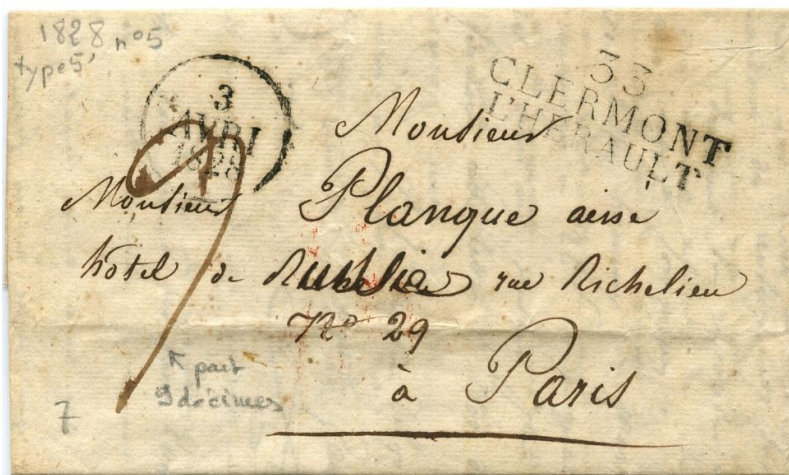 1828 n°5
type 5'
3
AVRI
1828
33
CLERMONT
L'HERAULT
9
Monsieur
Monsieur Planque
hôtel de rue Richelieu
N° 29
à Paris
port
9 décimes
7